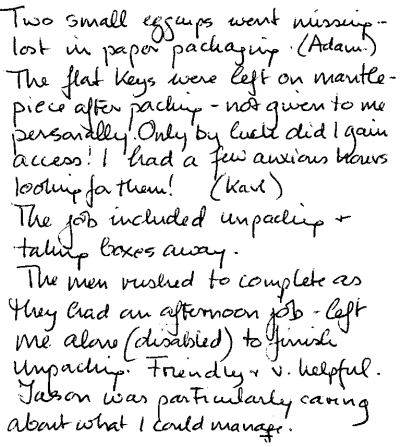 Two small eggcups went missing -
lost in paper packaging. (Adam?)
The flat keys were left on mantle-
piece after packing - not given to me
personally. Only by luck did I gain
access! I had a few anxious hours
looking for them! (Karl)
The job included unpacking +
taking boxes away.
The men rushed to complete as
they had an afternoon job - left
me alone (disabled) to finish
unpacking. Friendly + v. helpful.
Jason was particularly caring
about what I could manage.